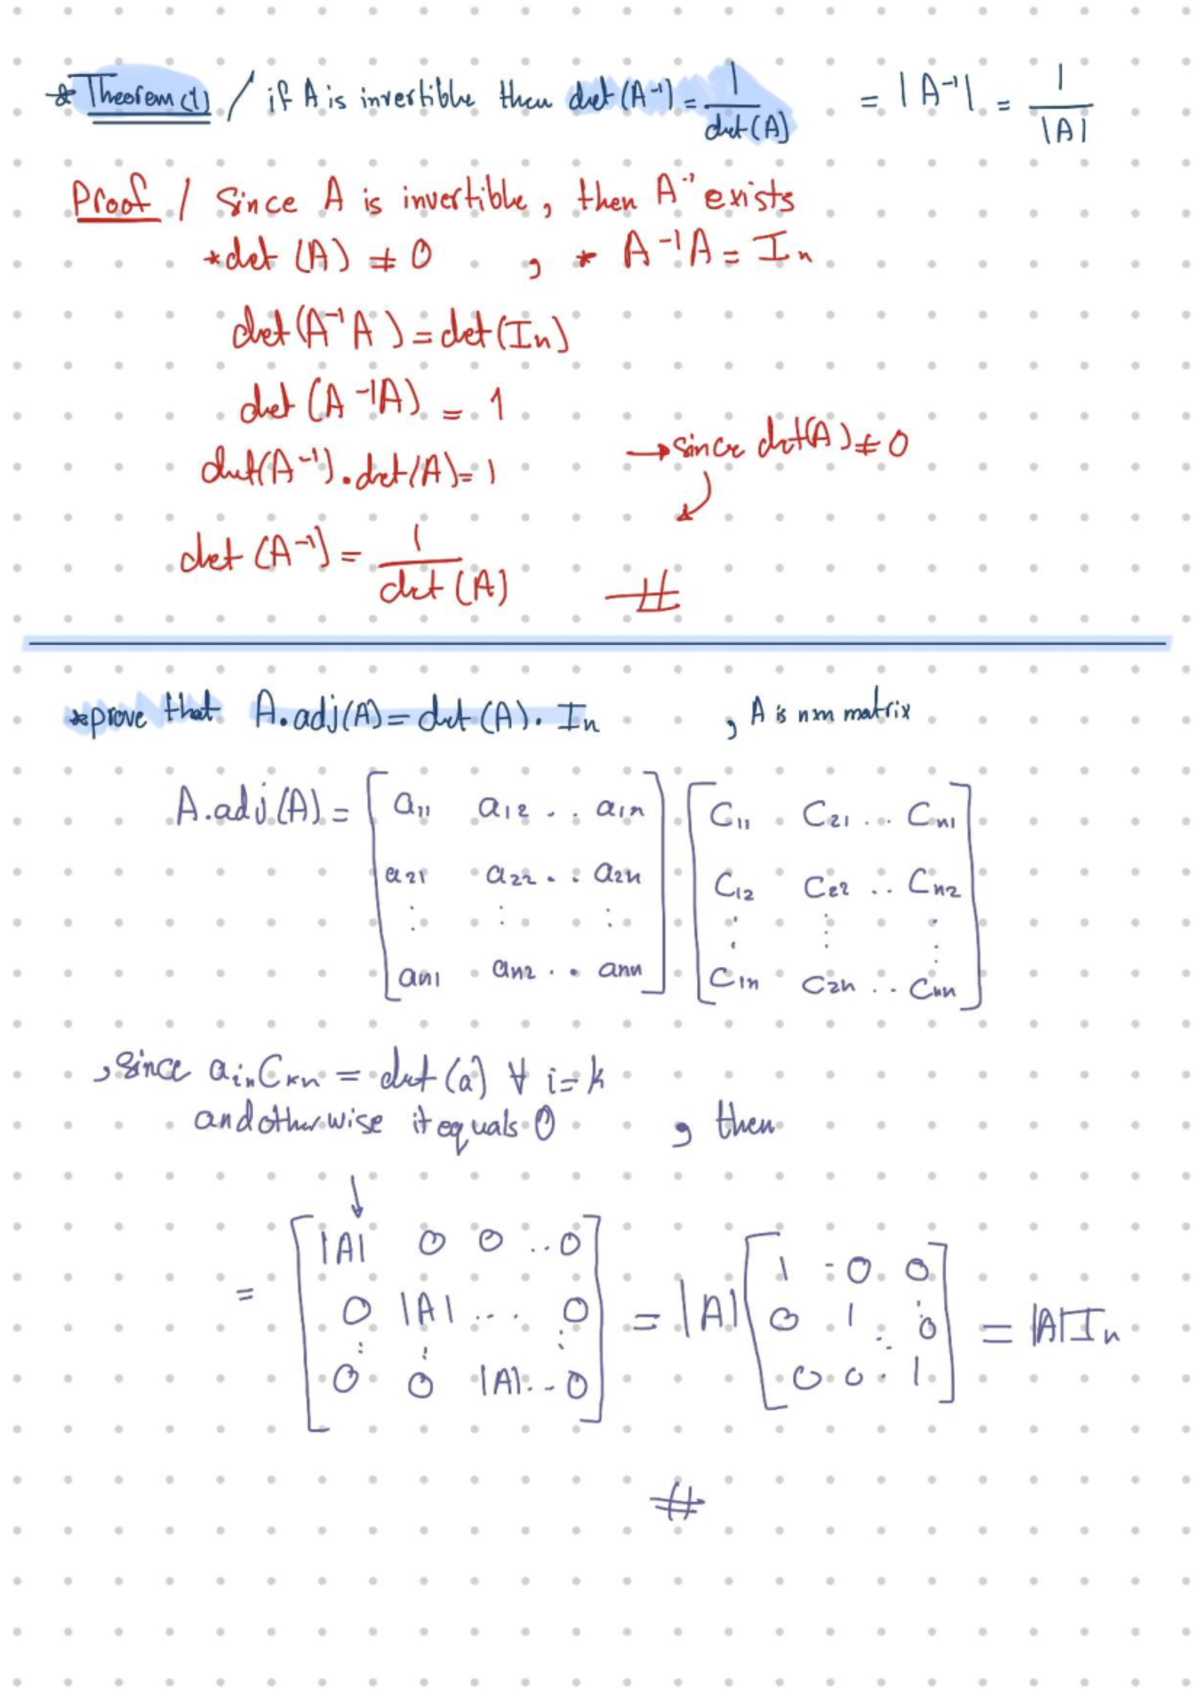 * Theorem (1) / if A is invertible then det (A⁻¹) = 1/det (A) = |A⁻¹| = 1/|A|
Proof / Since A is invertible, then A⁻¹ exists
* det (A) ≠ 0 , * A⁻¹A = In
det (A⁻¹A) = det (In)
det (A⁻¹A) = 1
det (A⁻¹) . det (A) = 1 → since det(A) ≠ 0
det (A⁻¹) = 1/det (A) #
* prove that A. adj(A) = det (A). In , A is nxn matrix
A. adj. (A) = [ a11 a12 .. a1n ] [ C11 C21 ... Cn1 ]
a21 a22 .. a2n C12 C22 .. Cn2
⋮ ⋮ ⋮ ⋮ ⋮ ⋮
an1 an2 .. ann C1n C2n .. Cnn
, since ain Ckn = det (a) ∀ i = k
and otherwise it equals 0 , then
↓
= [ |A| 0 0 .. 0 ] = |A| [ 1 - 0 0 ] = |A| In
0 |A| ... 0 0 1 ⋮ 0
⋮ ⋮ ⋮ ⋱
0 0 |A| .. 0 0 0 . 1
#